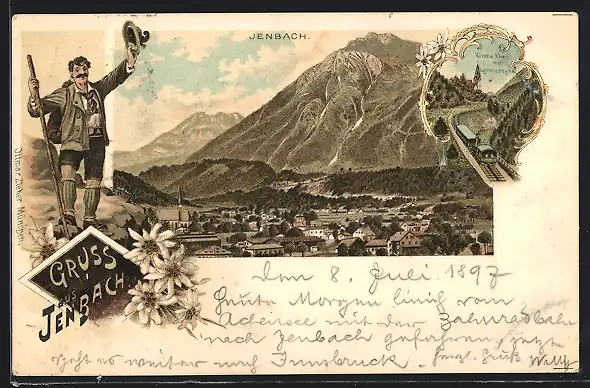 JENBACH.
Ottmar Zieher, München.
GRUSS
AUS
JENBACH.
Dem 8. Juli 1897
Heute Morgen bin ich vom
Achensee mit der Zahnradbahn
nach Jenbach gefahren, jetzt
geht es weiter nach Innsbruck. Herzl. Gruß Willy